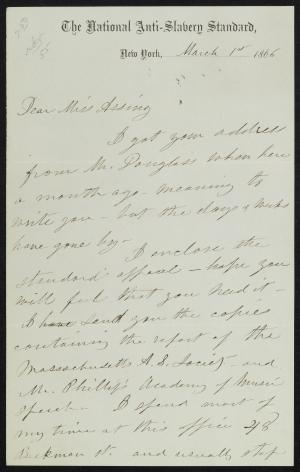 The National Anti-Slavery Standard,
New York, March 1st 1866
Dear Miss Assing
I got your address
from Mr. Douglass when here
a month ago - meaning to
write you - but the days & weeks
have gone by -
I enclose the
standard appeal - hope you
will feel that you need it -
I have send you the copies
containing the report of the
Massachusetts A. S. Society - and
Mr. Phillip's Academy of Music
speech - I spend most of
my time at this office 48
Beekman st. and usually stop